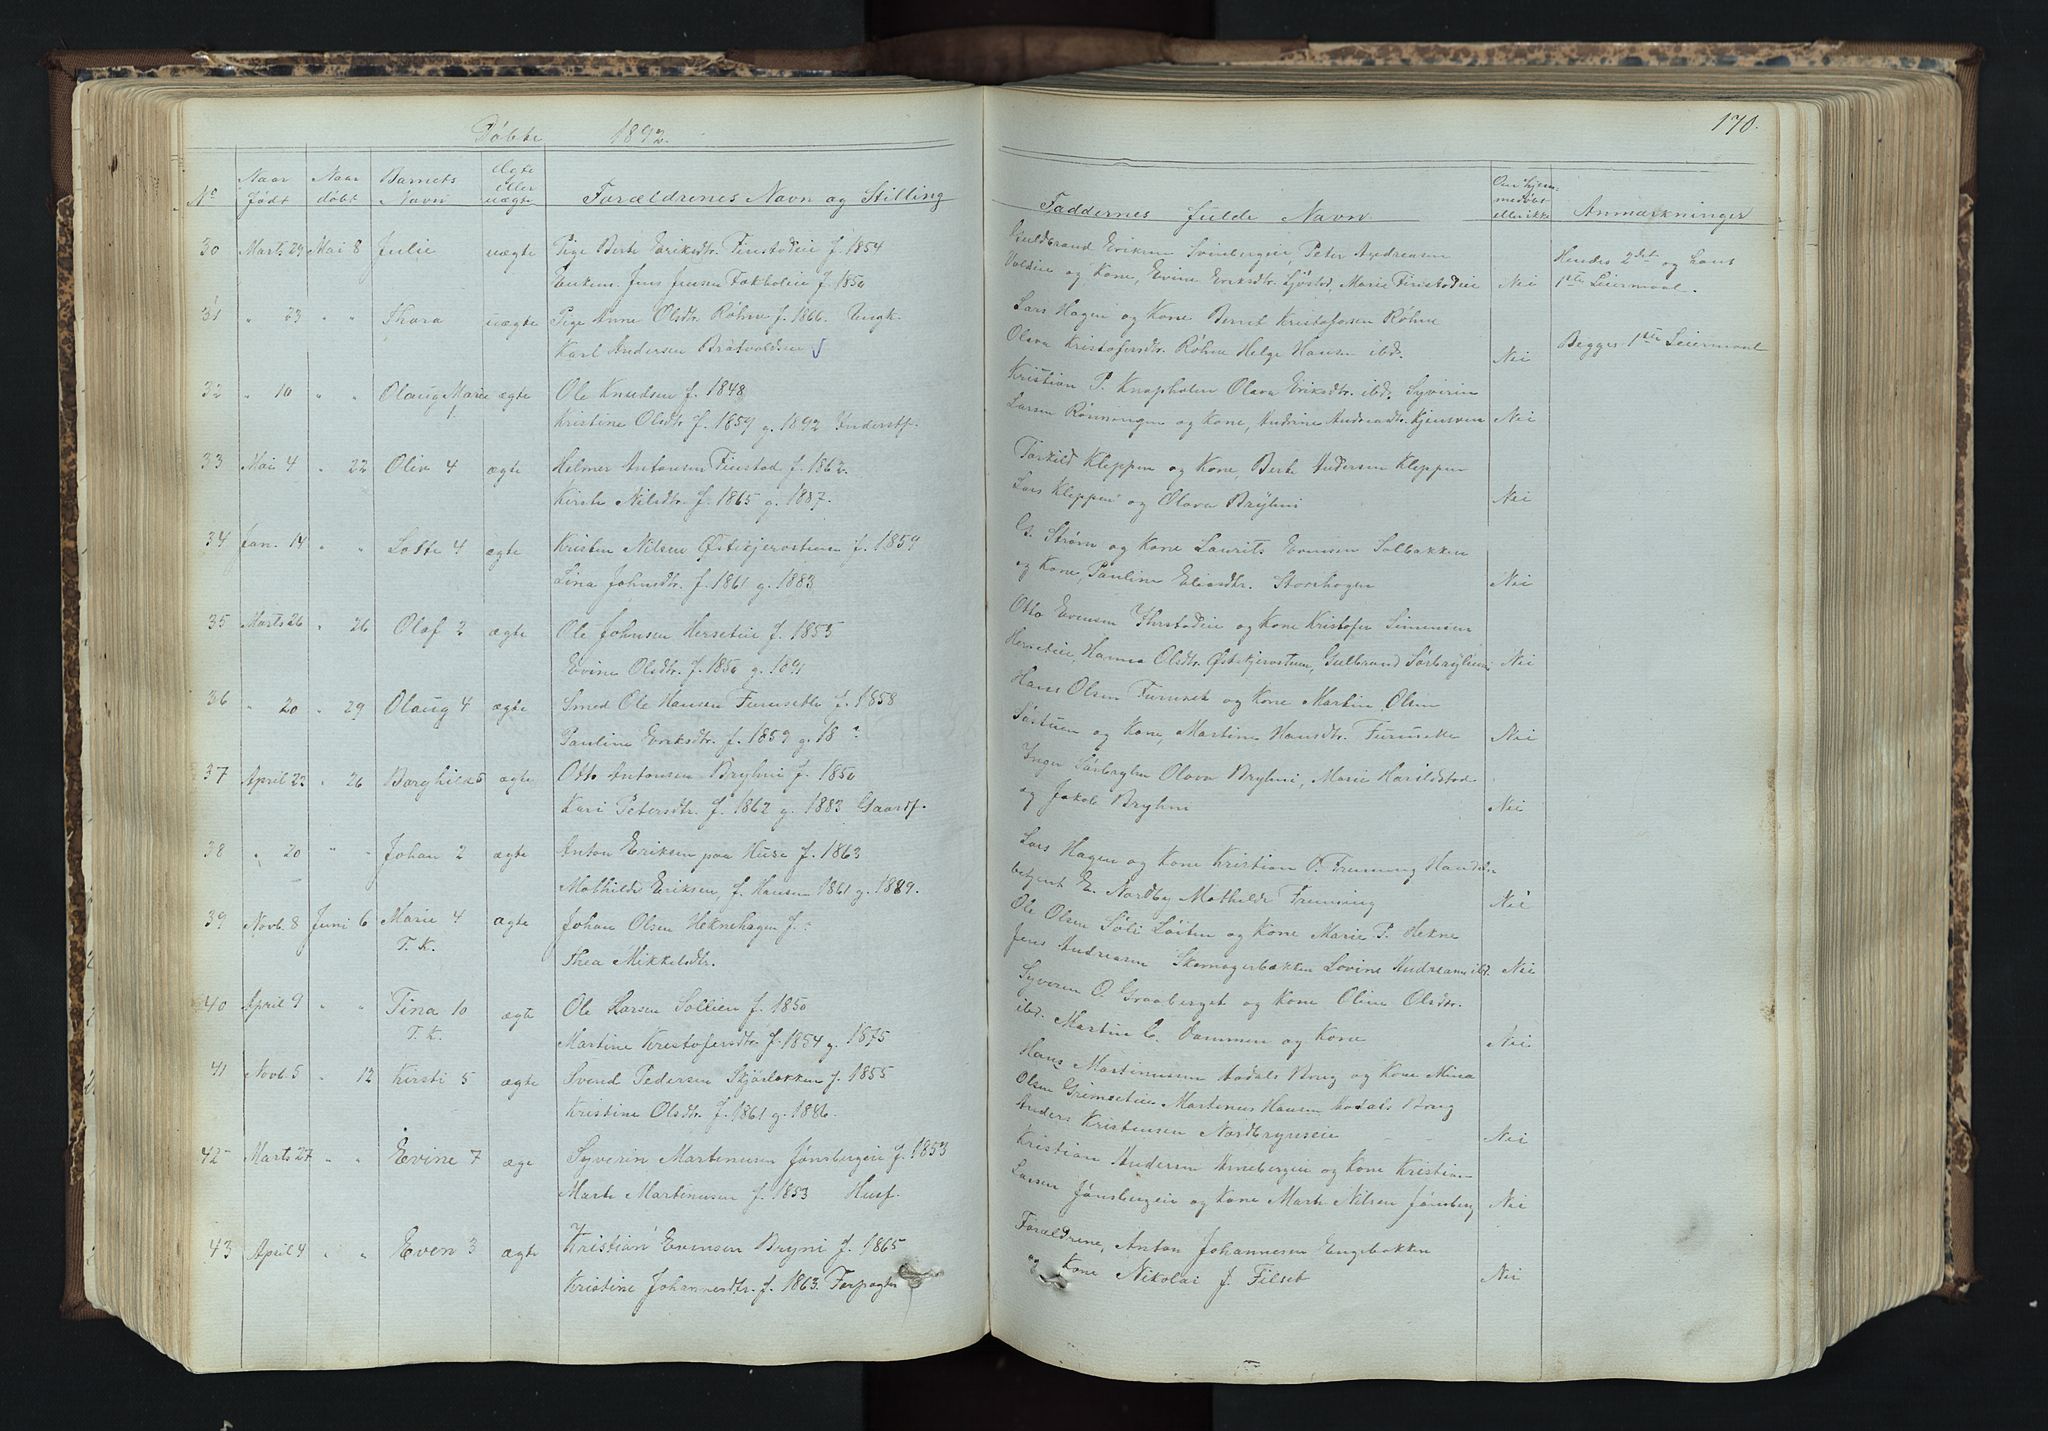 Døbte 1892.
170.
No
Naar født
Naar døbt
Barnets Navn
Ægte eller uægte
Forældrenes Navn og Stilling
Faddernes fulde Navn
Om hjemmedøbt eller ikke
Anmærkninger
30 Marts 29 Mai 8 Julie uægte Pige Berte Eriksdtr. Finstadeie f. 1854
Enkem. Jens Jensen f. 1850
Guldbrand Eriksen Svinbergeie, Peter Andreasen
og Kone, Evine Eriksdtr. Marie Finstadeie Nei
Hendes 2det og hans
1ste Leiermaal.
31 " 23 " " Thora uægte Pige Anne Olsdtr. Røhne f. 1866. Ungk.
Karl Andersen Bratvoldseie
Lars Hagen og Kone Bernt Kristofersen Røhne
Olava Kristofersdtr. Røhne Helge Hansen ibd. Nei
Begges 1ste Leiermaal
32 " 10 " " Olaug Marie 1 ægte Ole Knudsen f. 1848
Kristine Olsdtr f. 1859 g. 1892 Inderstf.
Kristian P. Knapholen Olava Eriksdtr. ibd. Syverin
Larsen Rønningen og Kone, Andrine Nei
33 Mai 4 " 22 Oliv 4 ægte Helmer Antonsen Finstad f. 1862
Kirste Nilsdtr. f. 1865 g. 1887.
Torkild Kleppen og Kone, Berte Andersen Kleppen
Lars Kleppen og Olava Bryhni Nei
34 Jan. 14 " " Lotte 4 ægte Kristen Nilsen Østskjerostuen f. 1859
Lina Johnsdtr. f. 1861 g. 1883
G. Strøm og Kone Laurits Evensen Solbakken
og Kone, Pauline Eliasdtr. Storshagen Nei
35 Marts 26 " 26 Olaf 2 ægte Ole Johnsen Herseteie f. 1855
Evine Olsdtr. f. 1850 g. 1891
Otto Evensen og Kone Kristofer Simensen
Herseteie, Hanna Olsdtr. Østskjerostuen, Gulbrand Nei
36 " 20 " 29 Olaug 4 ægte Smed Ole Hansen Furusette f. 1858
Pauline Eriksdtr. f. 1859 g. 18 ?
Hans Olsen Furuset og Kone Martin Olsen
og Kone, Martine Hansdtr. Furusette Nei
37 April 22 " 26 Borghild 5 ægte Otto Antonsen Bryhni f. 1850
Kari Petersdtr. f. 1862 g. 1883 Gaardf.
Inger Olava Bryhni, Marie Harildstad
og Jakob Bryhni Nei
38 " 20 " " Johan 2 ægte Anton Eriksen paa Huse f. 1863
Mathilde Eriksen, f. Hansen 1861 g. 1889.
Lars Hagen og Kone Kristian O. Frenning
E. Nordby Mathilde Frenning Nei
39 Novb. 8 Juni 6 Marie 4 ægte Johan Olsen Heknehagen f. :
T. K.
Thea Mikkelsdtr.
Ole Olsen Løiten og Kone Marie P. Hekne
Jens Andreasen Skomagerbakken Lovine Andreasen ibd. Nei
40 April 9 " " Tina 10 ægte Ole Larsen f. 1850
T. K.
Martine Kristofersdtr. f. 1854 g. 1875
Syveren O. Graaberget og Kone Oline Olsdtr.
ibd. Martin C. Dammen og Kone Nei
41 Novb. 5 " 12 Kirsti 5 ægte Svend Pedersen f. 1855
Kristine Olsdtr. f. 1861 g. 1886.
Hans Martinusen Aadals Brug og Kone Mina
Olsen Grimseteie Martinus Hansen Aadals Brug
Anders Kristensen Nordbryneeie Nei
42 Marts 27 " " Evine 7 ægte Syverin Martinusen Jønsbergeie f. 1853
Marte Martinusen f. 1853 Husf.
Kristian Andersen Arnebergeie og Kone Kristian
Larsen Jønsbergeie og Kone Marte Nilsen Jønsberg Nei
43 April 4 " " Even 3 ægte Kristian Evensen Bryni f. 1865
Kristine Johannesdtr. f. 1863. Forpagter
Forældrene, Anton Johannesen Engebakken
og Kone Nikolai J. Filset Nei